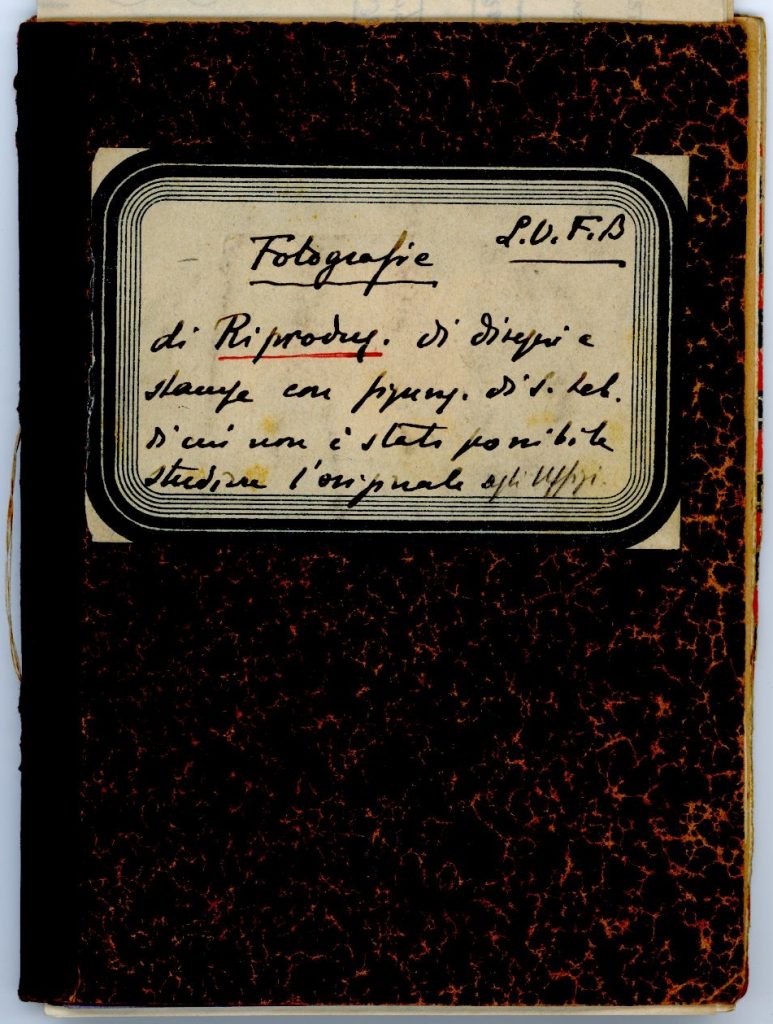 L.V.F.B
Fotografie
di Riproduz. di disegni e
stampe con figuraz. di S. Seb.
di cui non è stato possibile
studiare l'originale agli Uffizi.